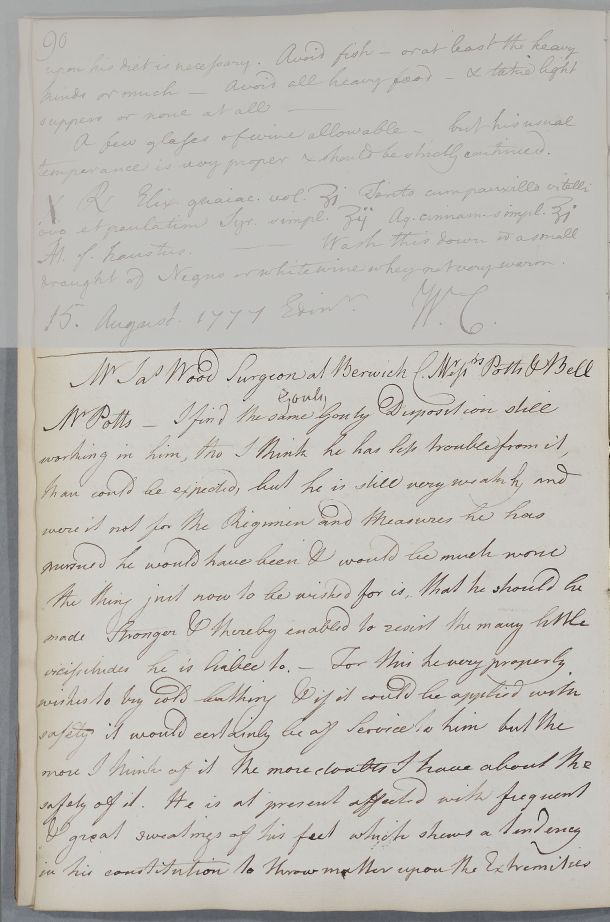 90
upon his diet is necessary. Avoid fish – or at least the heavy
kinds or much – Avoid all heavy food – & take light
suppers or none at all ——
A few glasses of wine allowable – but his usual
temperance is very proper & should be strictly continued.
X R Elix guaiac. vol. ʒj vitelli
ovo et paulatim Syr. simpl. ʒij Aq. cinnam. simpl. ʒj
M. f. haustus. —— Wash this down wt a small
draught of Negus or white wine whey not very warm.
15. August. 1777 Edinr. W. C.
Mr Jas Wood Surgeon at Berwick C. Messrs Potts & Bell
Gouty
Mr Potts – I find the same Gouty Disposition still
working in him, tho I think he has less trouble from it,
than could be expected, but he is still very weakly, and
were it not for the Regimen and Measures he has
pursued he would have been & would be much worse
the thing just now to be wished for is, that he should be
made Stronger & thereby enabled to resist the many little
vicissitudes he is liable to. – For this he very properly
wishes to try cold bathing & if it could be applied with
safety it would certainly be of Service to him but the
more I think of it the more doubts I have about the
safety of it. He is at present affected with frequent
& great sweatings of his feet which shews a tendency
in his constitution to throw matter upon the Extremities